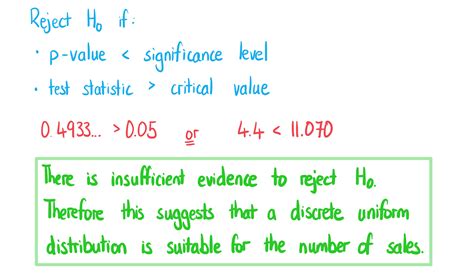 Reject H₀ if:
• p-value < significance level
• test statistic > critical value
0.4933... > 0.05 or 4.4 < 11.070
There is insufficient evidence to reject H₀.
Therefore this suggests that a discrete uniform
distribution is suitable for the number of sales.